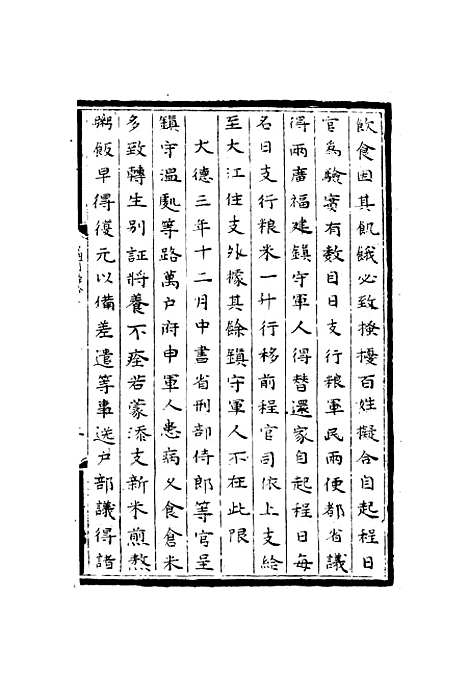 飲食因其飢餓必致換擾百姓擬合自起程日
官為驗實有數目日支行粮軍民兩便都省議
得兩廣福建鎮守軍人得替還家自起程日每
名日支行粮米一升行移前程官司依上支給
至大江住支外據其餘鎮守軍人不在此限
大德三年十二月中書省刑部侍郎等官呈
鎮守溫處等路萬戶府申軍人患病又食倉米
多致轉生別証將養不痊若蒙添支新米煎熬
粥飯早得復元以備差遣等事送戶部議得諸